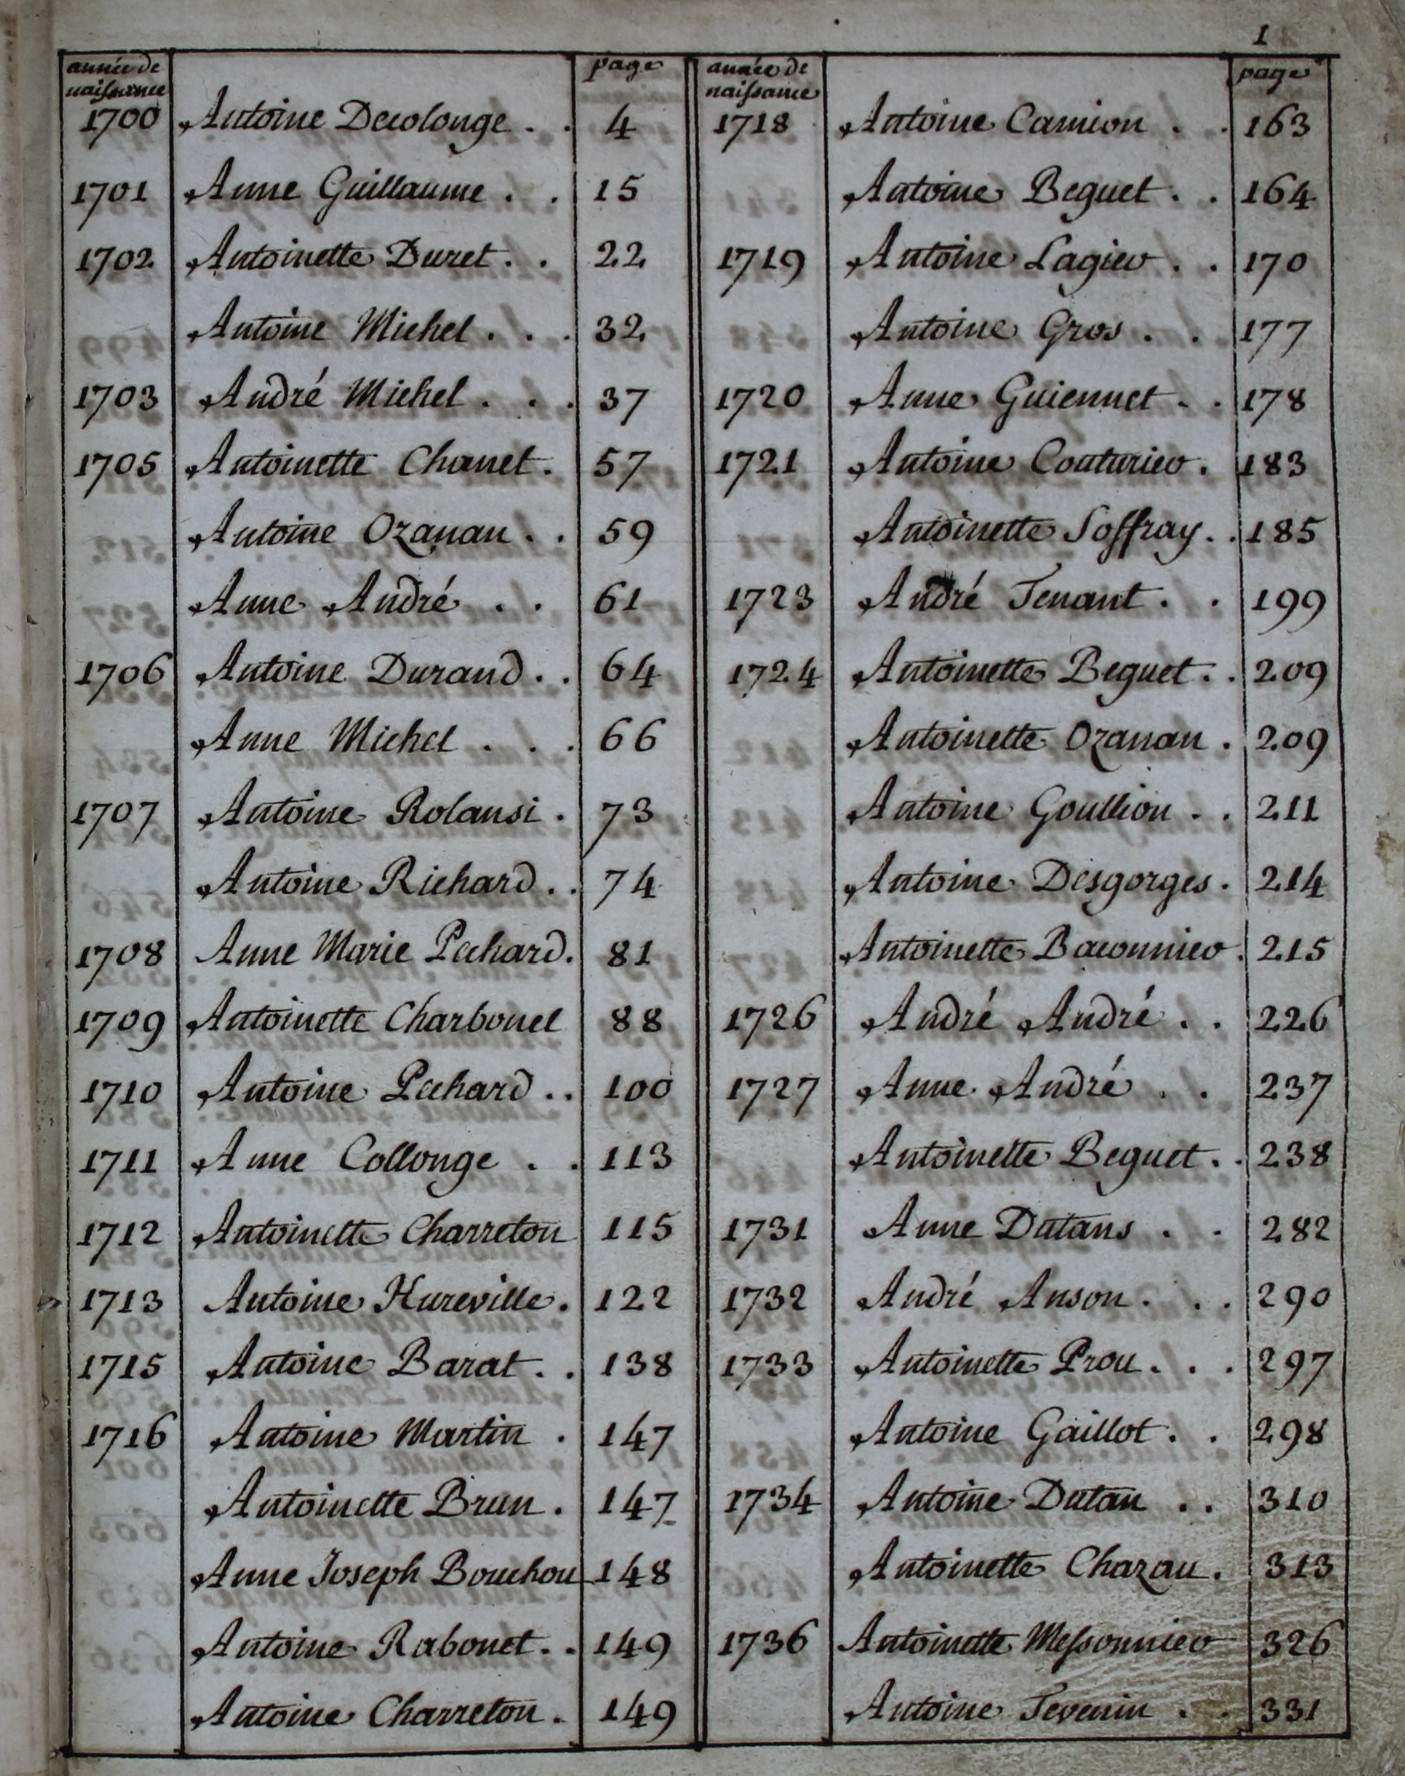 1
année de naissance page
1700 Antoine Decolonge . . 4
1701 Anne Guillaume . . 15
1702 Antoinette Duret . . 22
Antoine Michel . . . 32
1703 André Michel . . . 37
1705 Antoinette Chanet . 57
Antoine Ozanan . . 59
Anne André . . 61
1706 Antoine Durand . . 64
Anne Michel . . . 66
1707 Antoine Rolansi . 73
Antoine Richard . . 74
1708 Anne Marie Pechard . 81
1709 Antoinette Charbonet 88
1710 Antoine Pechard . . 100
1711 Anne Collonge . . 113
1712 Antoinette Charreton 115
1713 Antoine Hureville . 122
1715 Antoine Barat . . 138
1716 Antoine Martin . 147
Antoinette Brun . 147
Anne Joseph Bouchou 148
Antoine Rabonet . . 149
Antoine Charreton . 149
année de naissance page
1718 Antoine Camion . . 163
Antoine Beguet . . 164
1719 Antoine Lagier . . 170
Antoine Gros . . 177
1720 Anne Guiennet . . 178
1721 Antoine Couturier . 183
Antoinette Soffray . . 185
1723 André Tenant . . 199
1724 Antoinette Beguet . . 209
Antoinette Ozanan . 209
Antoine Goullion . . 211
Antoine Desgorges . 214
Antoinette Baconnier . 215
1726 André André . . 226
1727 Anne André . . 237
Antoinette Beguet . . 238
1731 Anne Dutans . . 282
1732 André Anson . . . 290
1733 Antoinette Prou . . . 297
Antoine Gaillot . . 298
1734 Antoine Dutan . . 310
Antoinette Chazau . 313
1736 Antoinette Messonnier 326
Antoine Tevenin . . 331